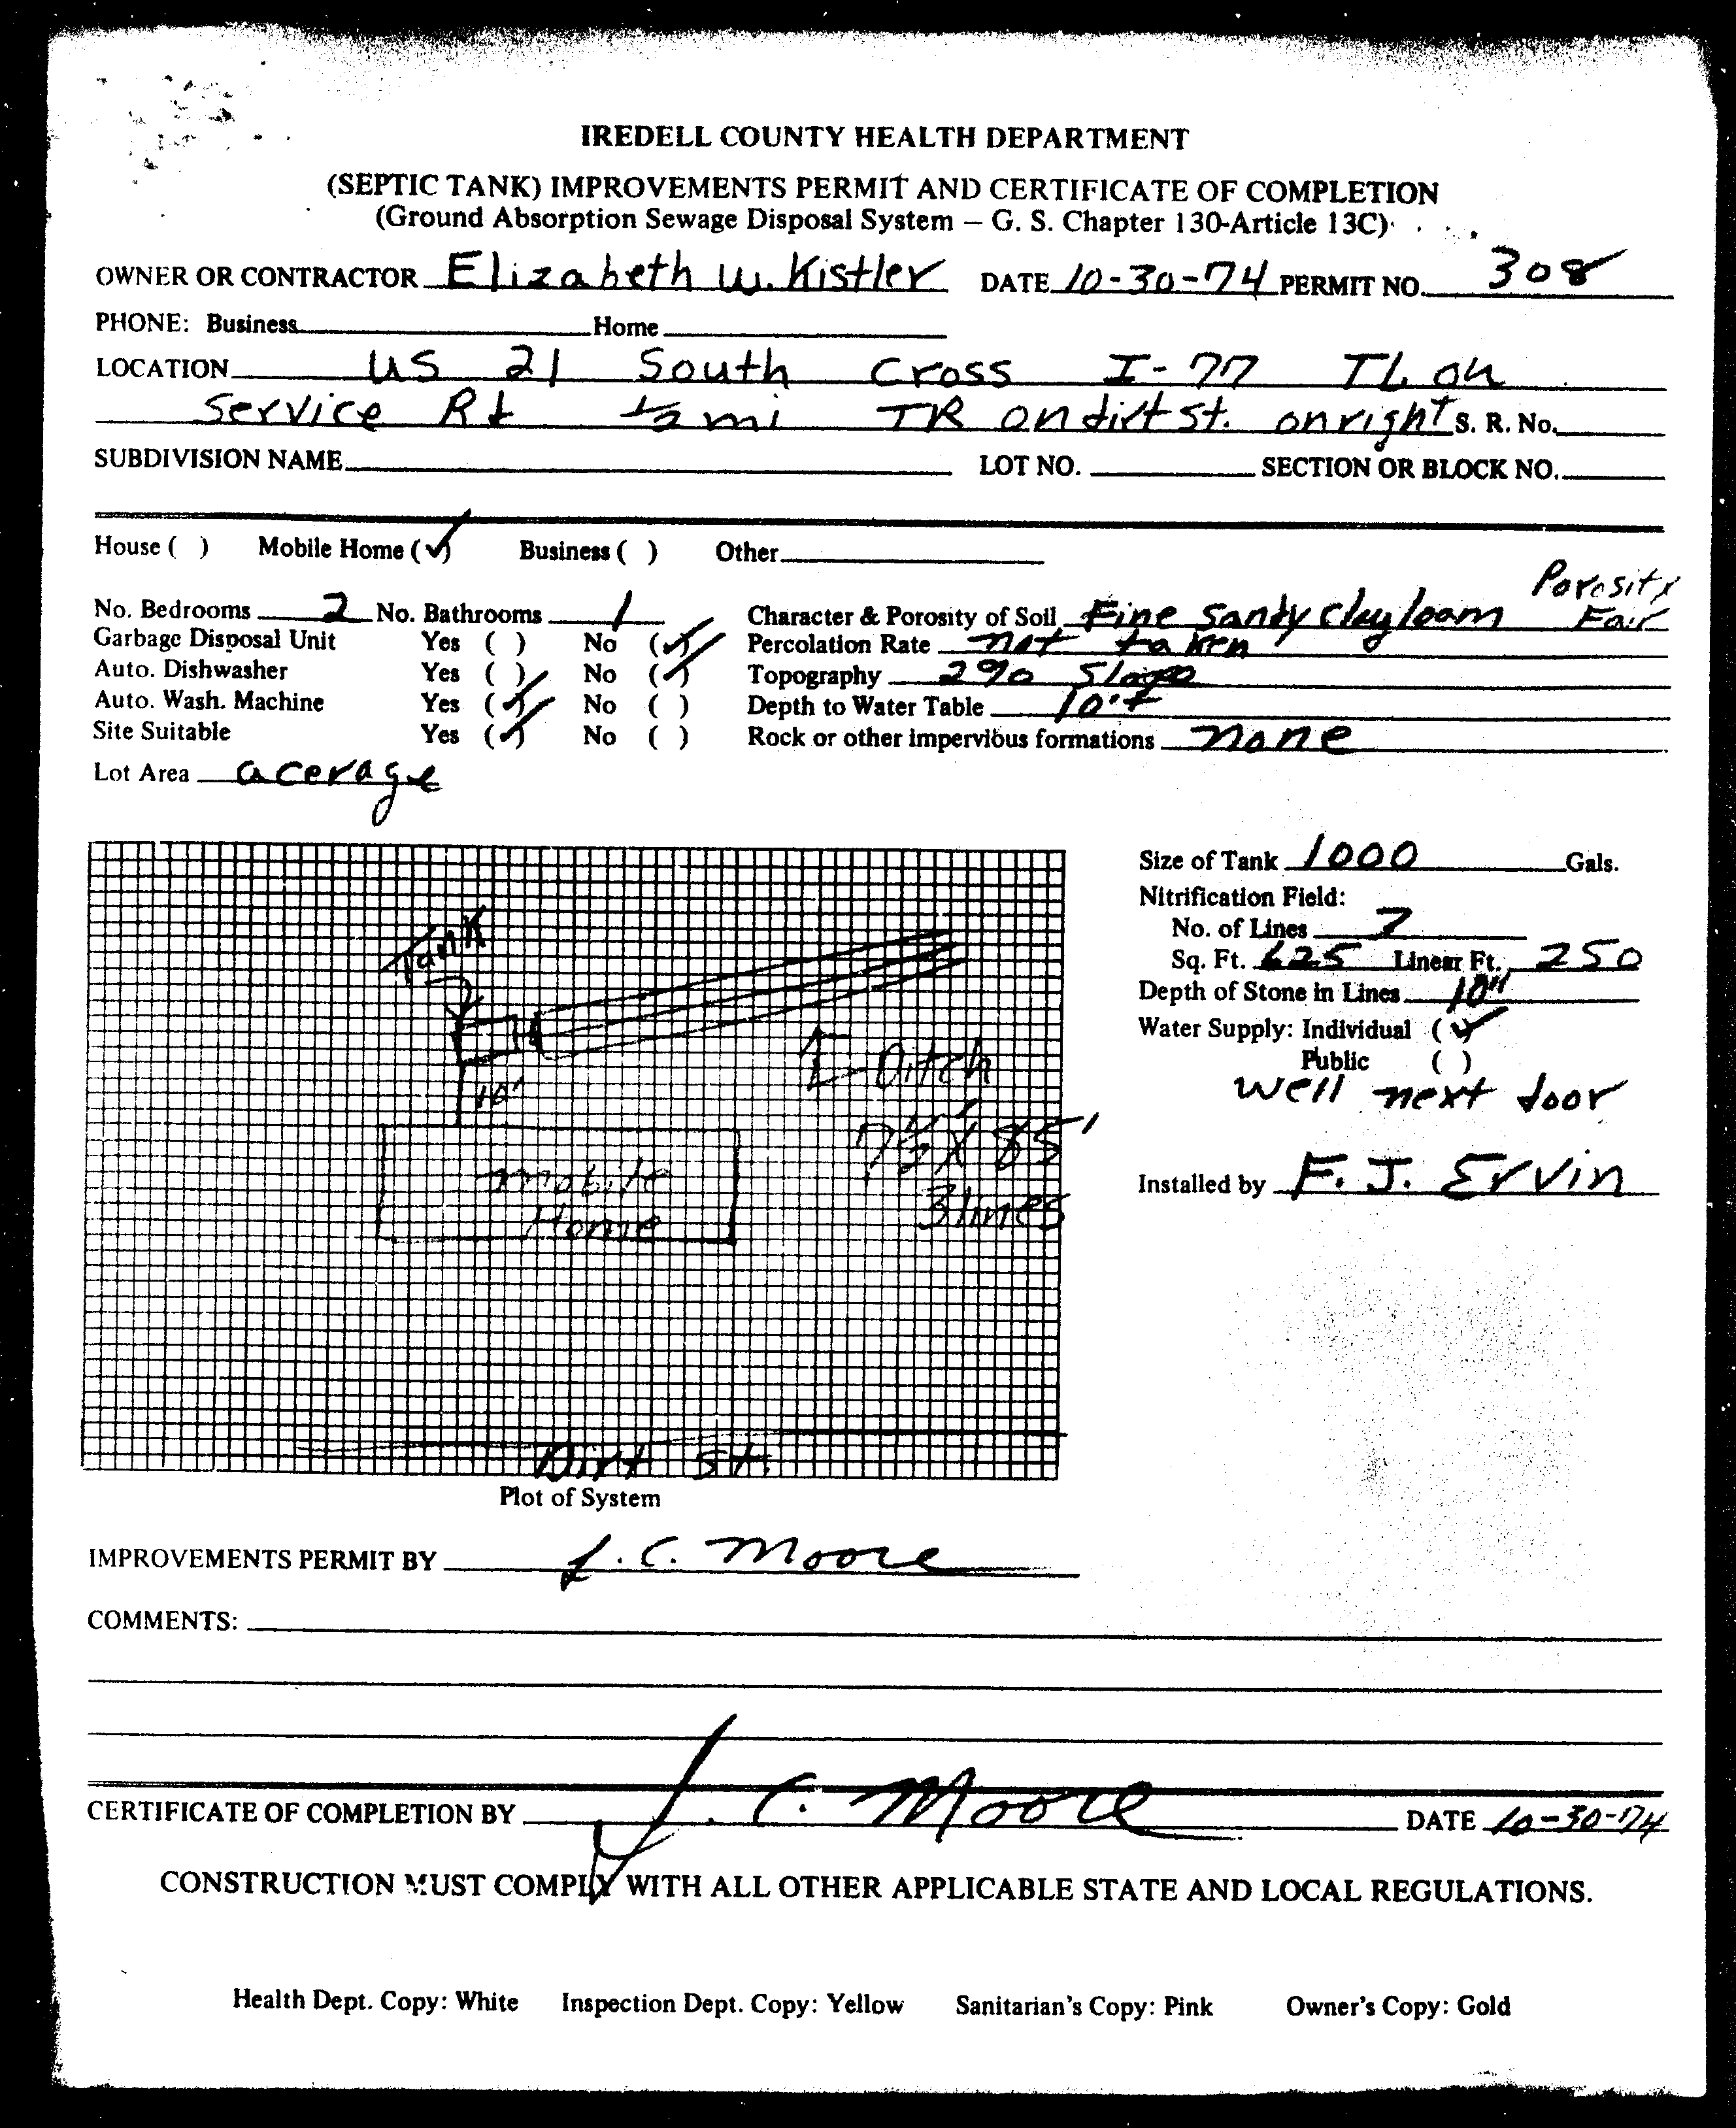 IREDELL COUNTY HEALTH DEPARTMENT
(SEPTIC TANK) IMPROVEMENTS PERMIT AND CERTIFICATE OF COMPLETION
(Ground Absorption Sewage Disposal System – G. S. Chapter 130-Article 13C)
OWNER OR CONTRACTOR Elizabeth W. Kistler DATE 10-30-74 PERMIT NO. 308
PHONE: Business Home
LOCATION US 21 South Cross I-77 TL on
Service Rd 1/2 mi TR on dirt st. on right S. R. No.
SUBDIVISION NAME LOT NO. SECTION OR BLOCK NO.
House ( ) Mobile Home (✓) Business ( ) Other
No. Bedrooms 2 No. Bathrooms 1 Character & Porosity of Soil Fine Sandy Clay loam Porosity Fair
Garbage Disposal Unit Yes ( ) No (✓) Percolation Rate not taken
Auto. Dishwasher Yes ( ) No (✓) Topography 2% Slope
Auto. Wash. Machine Yes (✓) No ( ) Depth to Water Table 10'+
Site Suitable Yes (✓) No ( ) Rock or other impervious formations none
Lot Area acerage
Size of Tank 1000 Gals.
Nitrification Field:
No. of Lines
Sq. Ft. 625 Linear Ft. 250
Depth of Stone in Lines 10"
Water Supply: Individual (✓)
Public ( )
well next door
Installed by F. J. Ervin
Tank
Ditch
10'
85'
3 lines
Mobile
Home
Dirt St.
Plot of System
IMPROVEMENTS PERMIT BY J. C. Moore
COMMENTS:
CERTIFICATE OF COMPLETION BY J. C. Moore DATE 10-30-74
CONSTRUCTION MUST COMPLY WITH ALL OTHER APPLICABLE STATE AND LOCAL REGULATIONS.
Health Dept. Copy: White Inspection Dept. Copy: Yellow Sanitarian's Copy: Pink Owner's Copy: Gold